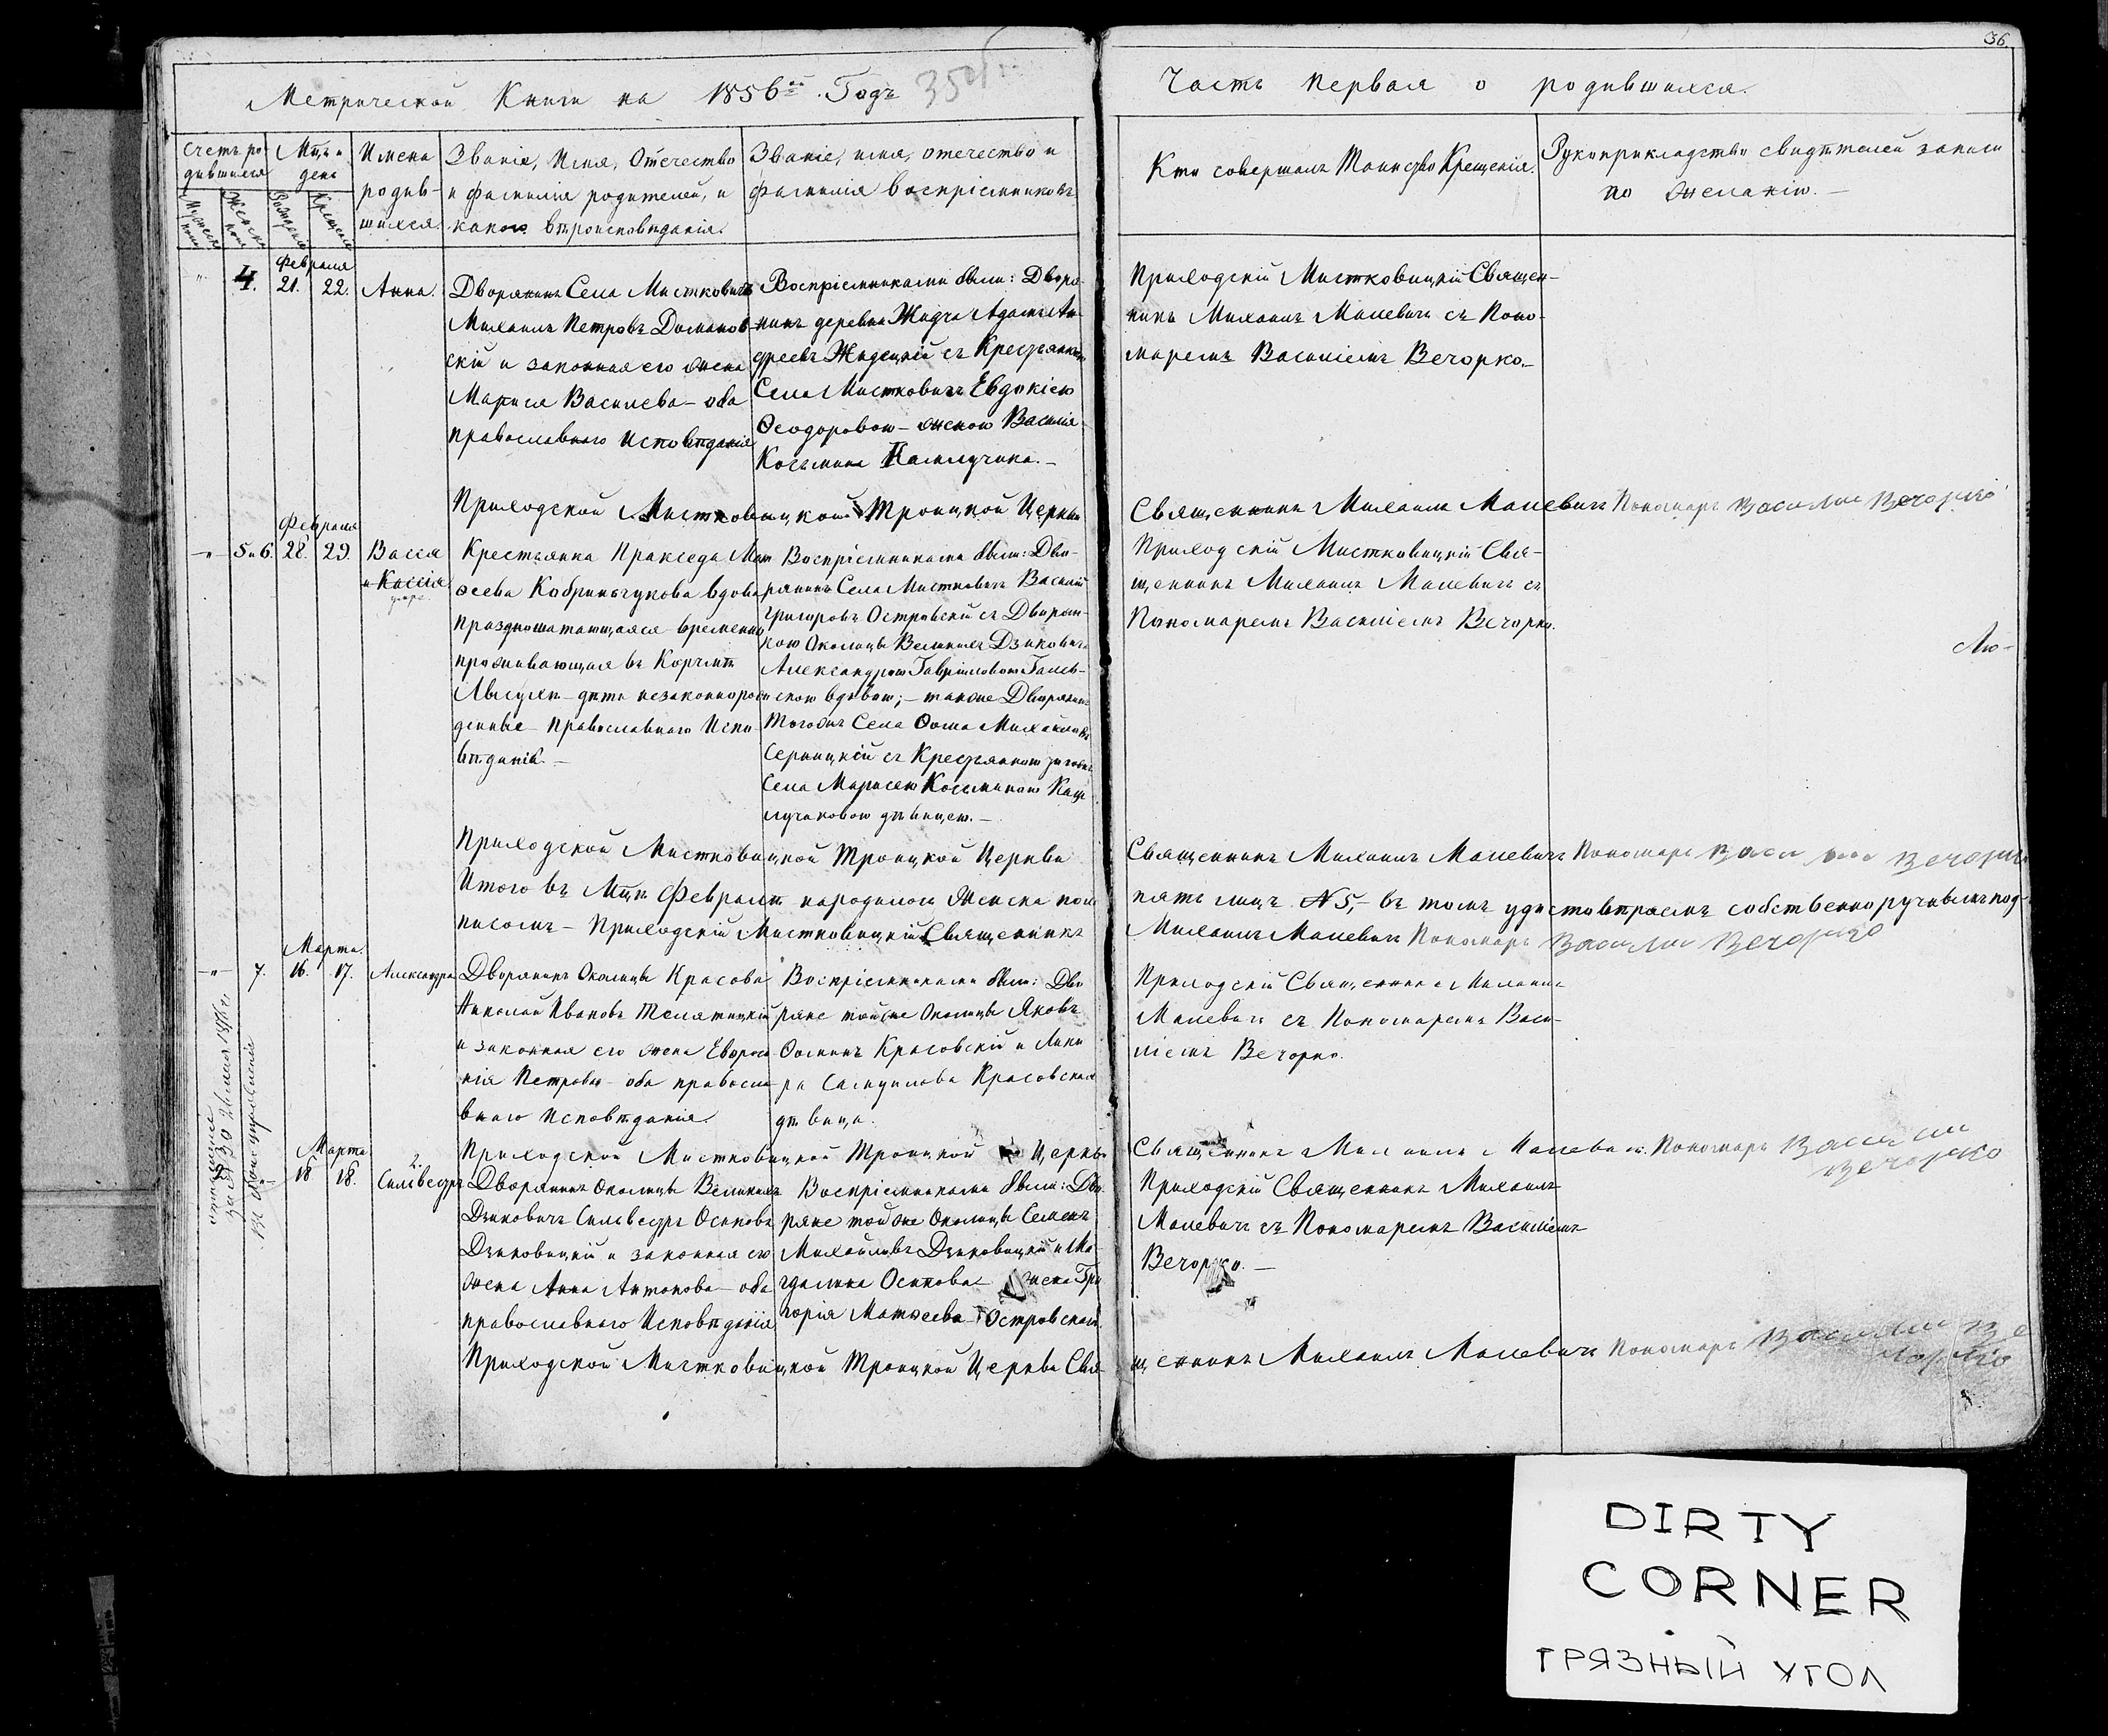 36
Метрической Книги на 1856й Годъ
Часть первая о родившихся.
Счетъ родившихся
Мужеска полу
Женска полу
Мцъ и день
Рожденія
Крещенія
Имена родившихся.
Званіе, Имя, Отечество
и фамилія родителей, и
какого вѣроисповѣданія.
Званіе, имя, отечество и
фамилія воспріемниковъ
Кто совершалъ Таинство Крещенія.
Рукоприкладство свидѣтелей записи
по желанію.
Февраля
4. 21. 22. Анна.
Дворянинъ Села Мистковичъ
Михаилъ Петровъ Доманов-
скій и законная его жена
Марія Васильева - оба
православнаго Исповѣданія
Воспріемниками были: Дворя-
нинъ деревни Жидча Адамъ Ан-
дреевъ Жидецкій съ Крестьянкою
Села Мистковичъ Евдокіею
Ѳеодоровою - женою Василія
Косьмина
Приходскій Мистковицкій Священ-
никъ Михаилъ Малевичъ съ Поно-
маремъ Василіемъ Вечорко.
Приходской Мистковицкой Троицкой Церкви
Священникъ Михаилъ Малевичъ Пономарь Василий Вечорко
Февраля
5 и 6. 28. 29. Васса
и Кассія
умре
Крестьянка Праксeда Мат-
ѳеева Кобринчукова вдова
праздношатающаяся - временно
проживающая въ Корчмѣ
дѣти незаконнорож-
денные - Православнаго Испо-
вѣданія. -
Воспріемниками были: Дво-
рянинъ Села Мистковичъ Василій
Григоровъ Островскій съ Дворян-
кою Околицы Великихъ Дзиковичъ
Александрою Гавріиловою
вдовою; - также Дворянинъ
тогожъ Села Ѳома Михайловъ
Серницкій съ Крестьянкою тогожъ
Села Маріею Косьминою
дѣвицею. -
Приходскій Мистковицкій Свя-
щенникъ Михаилъ Малевичъ съ
Пономаремъ Василіемъ Вечорко.
Лю-
Приходской Мистковицкой Троицкой Церкви
Священникъ Михаилъ Малевичъ Пономарь Василий Вечорко
Итого въ Мцѣ Февралѣ народилось Женска пола
пять лицъ № 5, - въ томъ удостовѣряемъ собственноручнымъ под-
писомъ - Приходскій Мистковицкій Священникъ
Михаилъ Малевичъ Пономарь Василий Вечорко
Марта
7. 16. 17. Александра
Дворянинъ Околицы Красова
Николай Ивановъ Телятицкій
и законная его жена Евфроси-
нія Петрова - оба правосла-
внаго Исповѣданія.
Воспріемниками были: Дво-
ряне той же Околицы Яковъ
Ѳоминъ Красовскій и
Самуилова Красовская
дѣвица.
Приходскій Священникъ Михаилъ
Малевичъ съ Пономаремъ Васи-
ліемъ Вечорко.
Приходской Мистковицкой Троицкой Церкви
Священникъ Михаилъ Малевичъ. Пономарь Василий
Вечорко
Марта
2. 18 18. Сильвестръ
Дворянинъ Околицы Великихъ
Дзиковичъ Сильвестръ Осиповъ
Дзиковицкій и законная его
жена Анна Антонова - оба
православнаго Исповѣданія
Воспріемниками были: Дво-
ряне той же Околицы Семенъ
Михайловъ Дзиковицкій и Ма-
гдалина Осипова - жена Гри-
горія Матѳеева Островскаго.
Приходскій Священникъ Михаилъ
Малевичъ съ Пономаремъ Василіемъ
Вечорко. -
Приходской Мистковицкой Троицкой Церкви Свя-
щенникъ Михаилъ Малевичъ Пономарь Василий Ве
чорко
DIRTY
CORNER
ГРЯЗНЫЙ УГОЛ